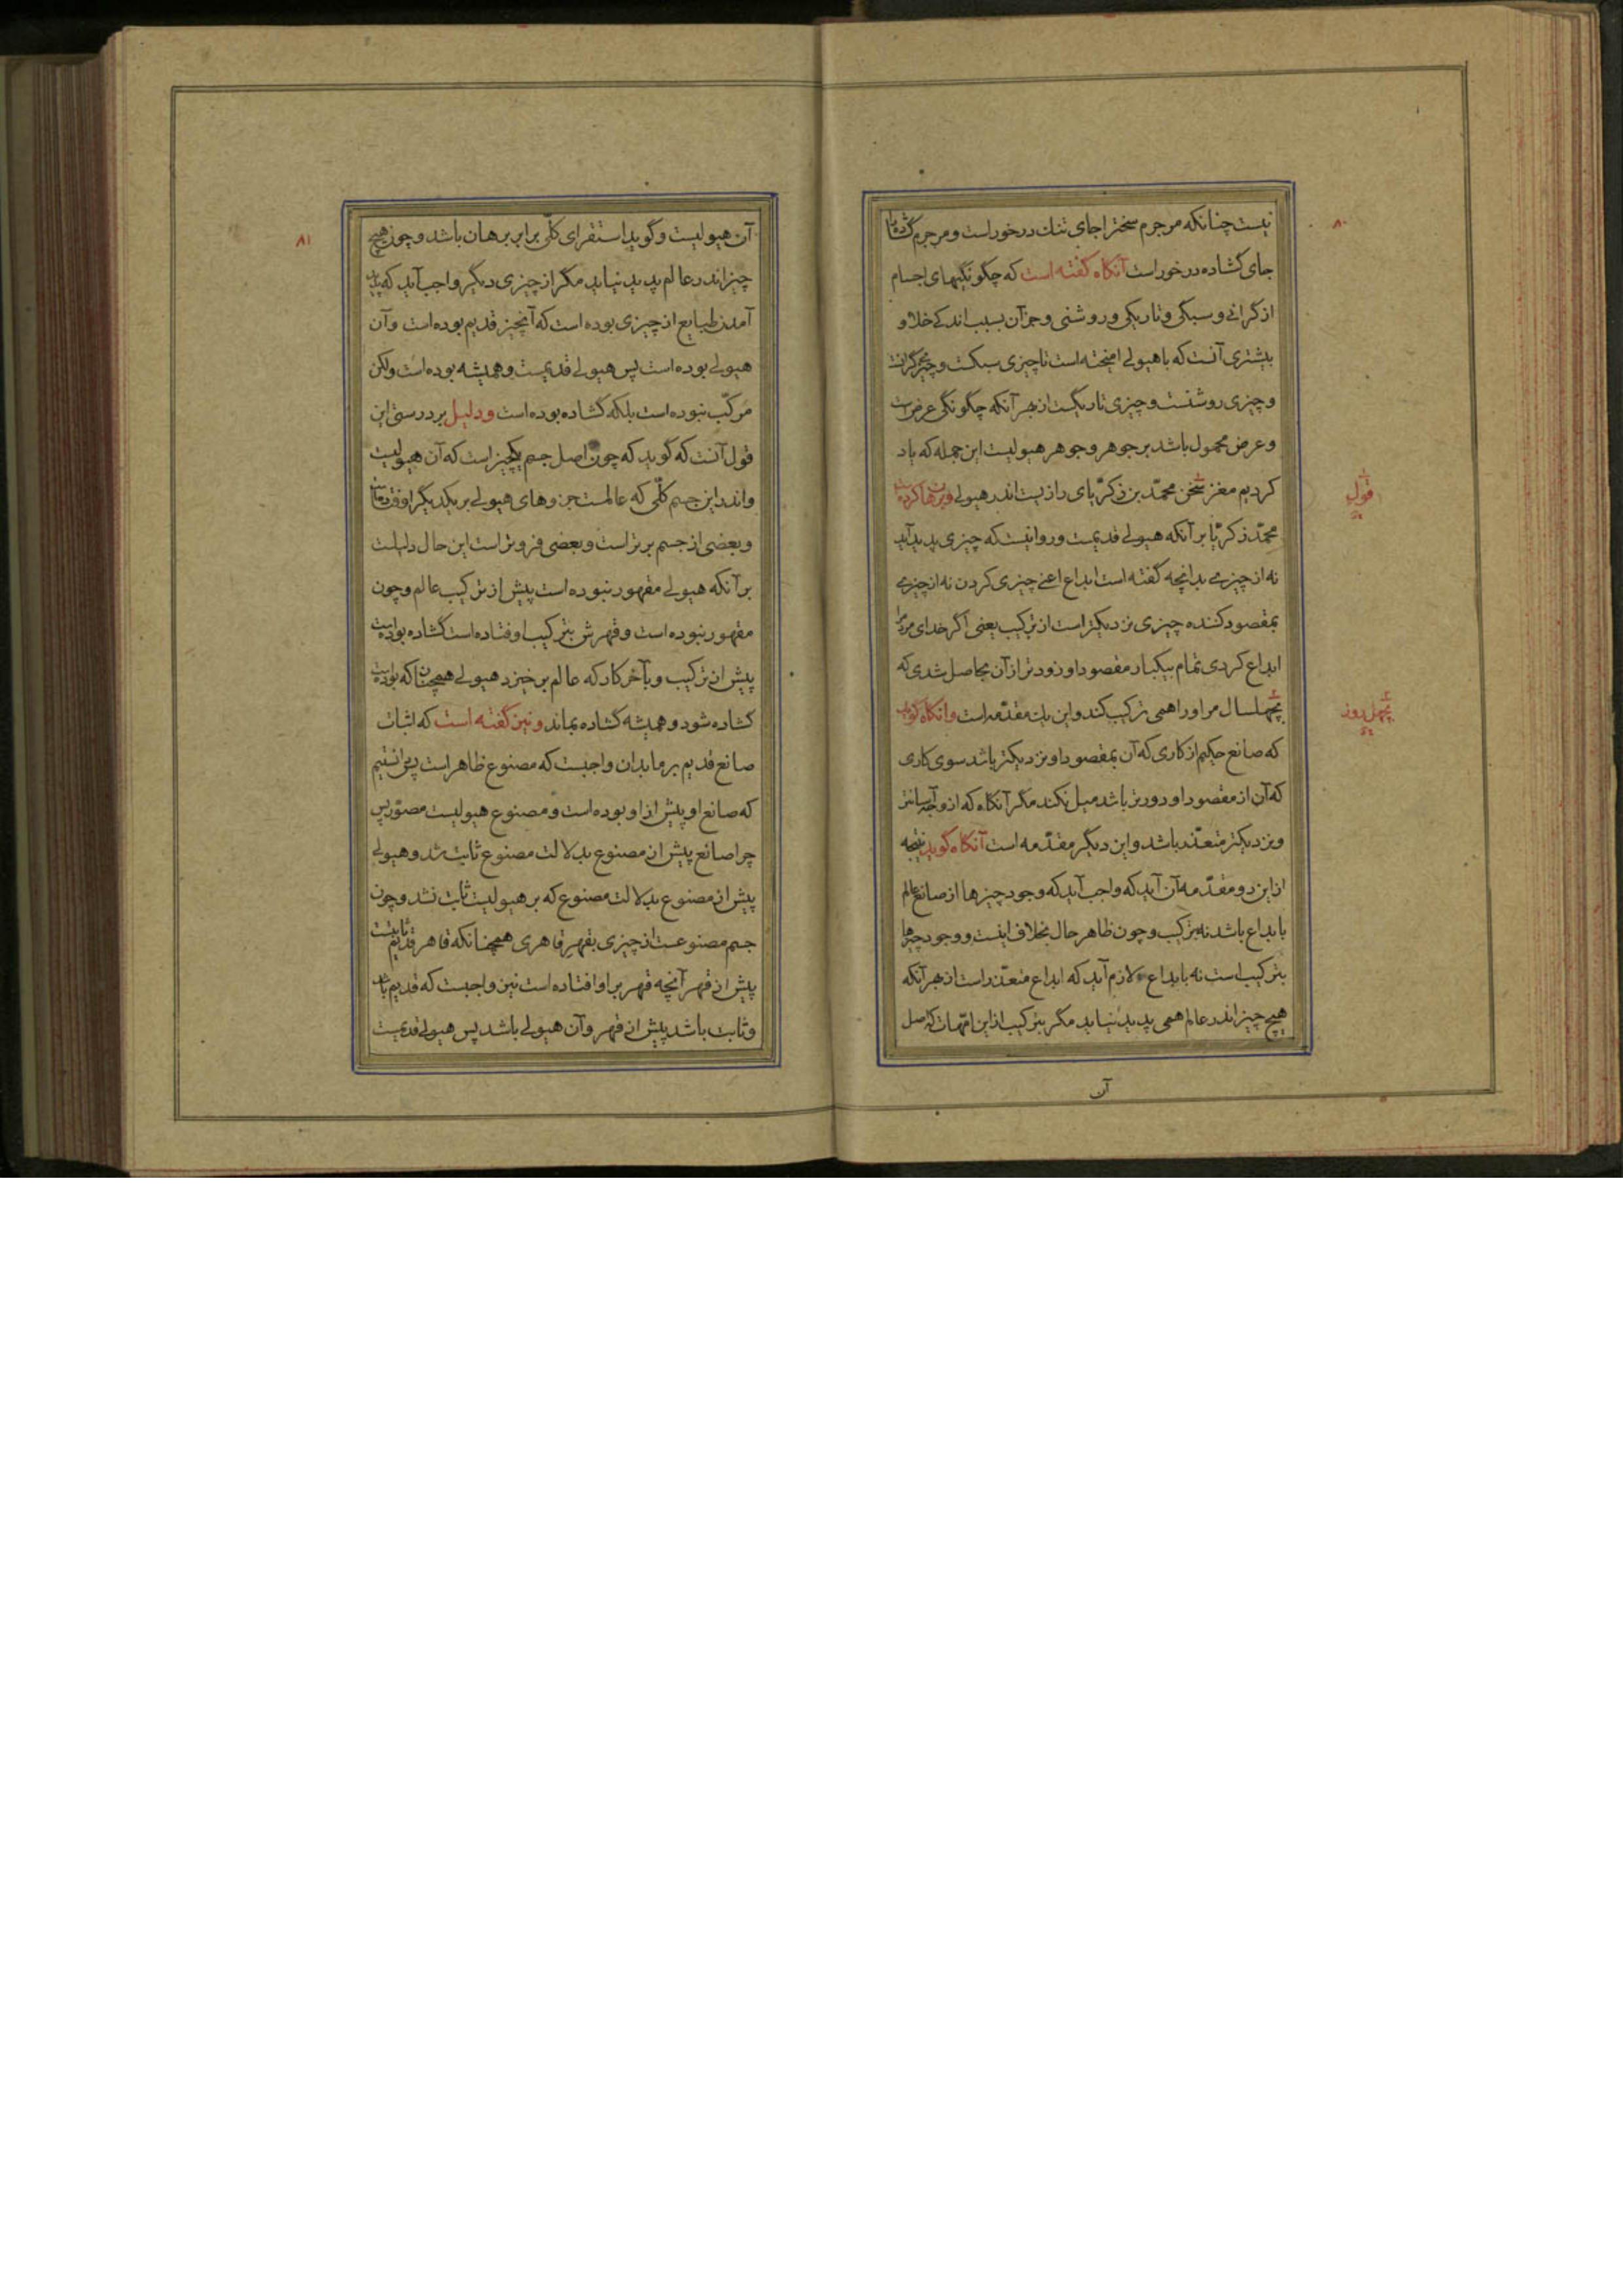 ۸۰
نیست چنانکه مر جرم سختر اجای تنك درخور است و مر جرم گشاده را
جای گشاده درخور است آنگاه گفته است که چگونگیهای اجسام
از گرانی و سبکی و تاریکی و روشنی و جز آن بسبب اندکی خلا و
بیشتری آنست که با هیولی امیخته است تا چیزی سبکست و چیز گرانست
و چیزی روشنست و چیزی تاریکست از بهر آنکه چگونگی عرض است
و عرض محمول باشد بر جوهر و جوهر هیولیست این جمله که یاد
کردیم مغز سخن محمّد بن زکریّای رازیست اندر هیولی و برهان کرده است
قول
محمّد زکریّا بر آنکه هیولی قدیمست و روا نیست که چیزی پدید آید
نه از چیزی بدانچه گفته است ابداع اعنی چیزی کردن نه از چیزی
بمقصود کننده چیزی نزدیکتر است از ترکیب یعنی اگر خدای مردم را
ابداع کردی تمام بیکبار مقصود او زودتر از آن بحاصل شدی که
بچهلسال مر او را همی ترکیب کند و این یك مقدّمه است و آنگاه گوید
بچهل روز
که صانع حکیم از کاری که آن بمقصود او نزدیکتر باشد سوی کاری
که آن از مقصود او دورتر باشد میل نکند مگر آنگاه که از وجه آسانتر
و نزدیکتر متعذّر باشد و این دیگر مقدّمه است آنگاه گوید نتیجه
از این دو مقدّمه آن آید که واجب آید که وجود چیزها از صانع عالم
بابداع باشد نه بترکیب و چون ظاهر حال بخلاف اینست و وجود چیزها
بترکیب است نه بابداع لازم آید که ابداع متعذّر است از بهر آنکه
هیچ چیز اندر عالم همی پدید نیاید مگر بترکیب از این امّهات که اصل
آن
۸۱
آن هیولیست و گوید استقرای کلّی برابر برهان باشد و چون هیچ
چیز اندر عالم پدید نیاید مگر از چیزی دیگر واجب آید که پدید
آمدن طبایع از چیزی بوده است که آنچیز قدیم بوده است و آن
هیولی بوده است پس هیولی قدیمست و همیشه بوده است ولکن
مرکّب نبوده است بلکه گشاده بوده است و دلیل بر درستی این
قول آنست که گوید که چون اصل جسم یکچیز است که آن هیولیست
و اندر این جسم کلّی که عالمست جزوهای هیولی بر یکدیگر اوفتاده است
و بعضی از جسم برتر است و بعضی فروتر است این حال دلیلست
بر آنکه هیولی مقهور نبوده است پیش از ترکیب عالم و چون
مقهور نبوده است و قهرش بترکیب اوفتاده است گشاده بوده است
پیش از ترکیب و بآخر کار که عالم برخیزد هیولی همچنان که بوده است
گشاده شود و همیشه گشاده بماند و نیز گفته است که اثبات
صانع قدیم بر ما بدان واجبست که مصنوع ظاهر است پس دانستیم
که صانع او پیش از او بوده است و مصنوع هیولیست مصوّر پس
چرا صانع پیش از مصنوع بدلالت مصنوع ثابت شد و هیولی
پیش از مصنوع بدلالت مصنوع که بر هیولیست ثابت نشد و چون
جسم مصنوعست از چیزی بقهر قاهری همچنانکه قاهر قدیم ثابتست
پیش از قهر آنچه قهر بر او افتاده است نیز واجبست که قدیم باشد
و ثابت باشد پیش از قهر و آن هیولی باشد پس هیولی قدیمست